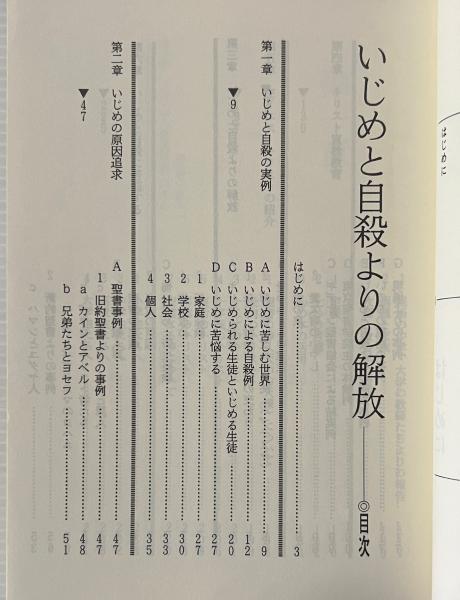 いじめと自殺よりの解放――◎目次
はじめに……3
第一章 いじめと自殺の実例
▼9
A いじめに苦しむ世界……9
B いじめによる自殺例……12
C いじめられる生徒といじめる生徒……20
D いじめに苦悩する……27
1 家庭……27
2 学校……30
3 社会……33
4 個人……35
第二章 いじめの原因追求
▼47
A 聖書事例……47
1 旧約聖書よりの事例……47
a カインとアベル……48
b 兄弟たちとヨセフ……51
はじめに